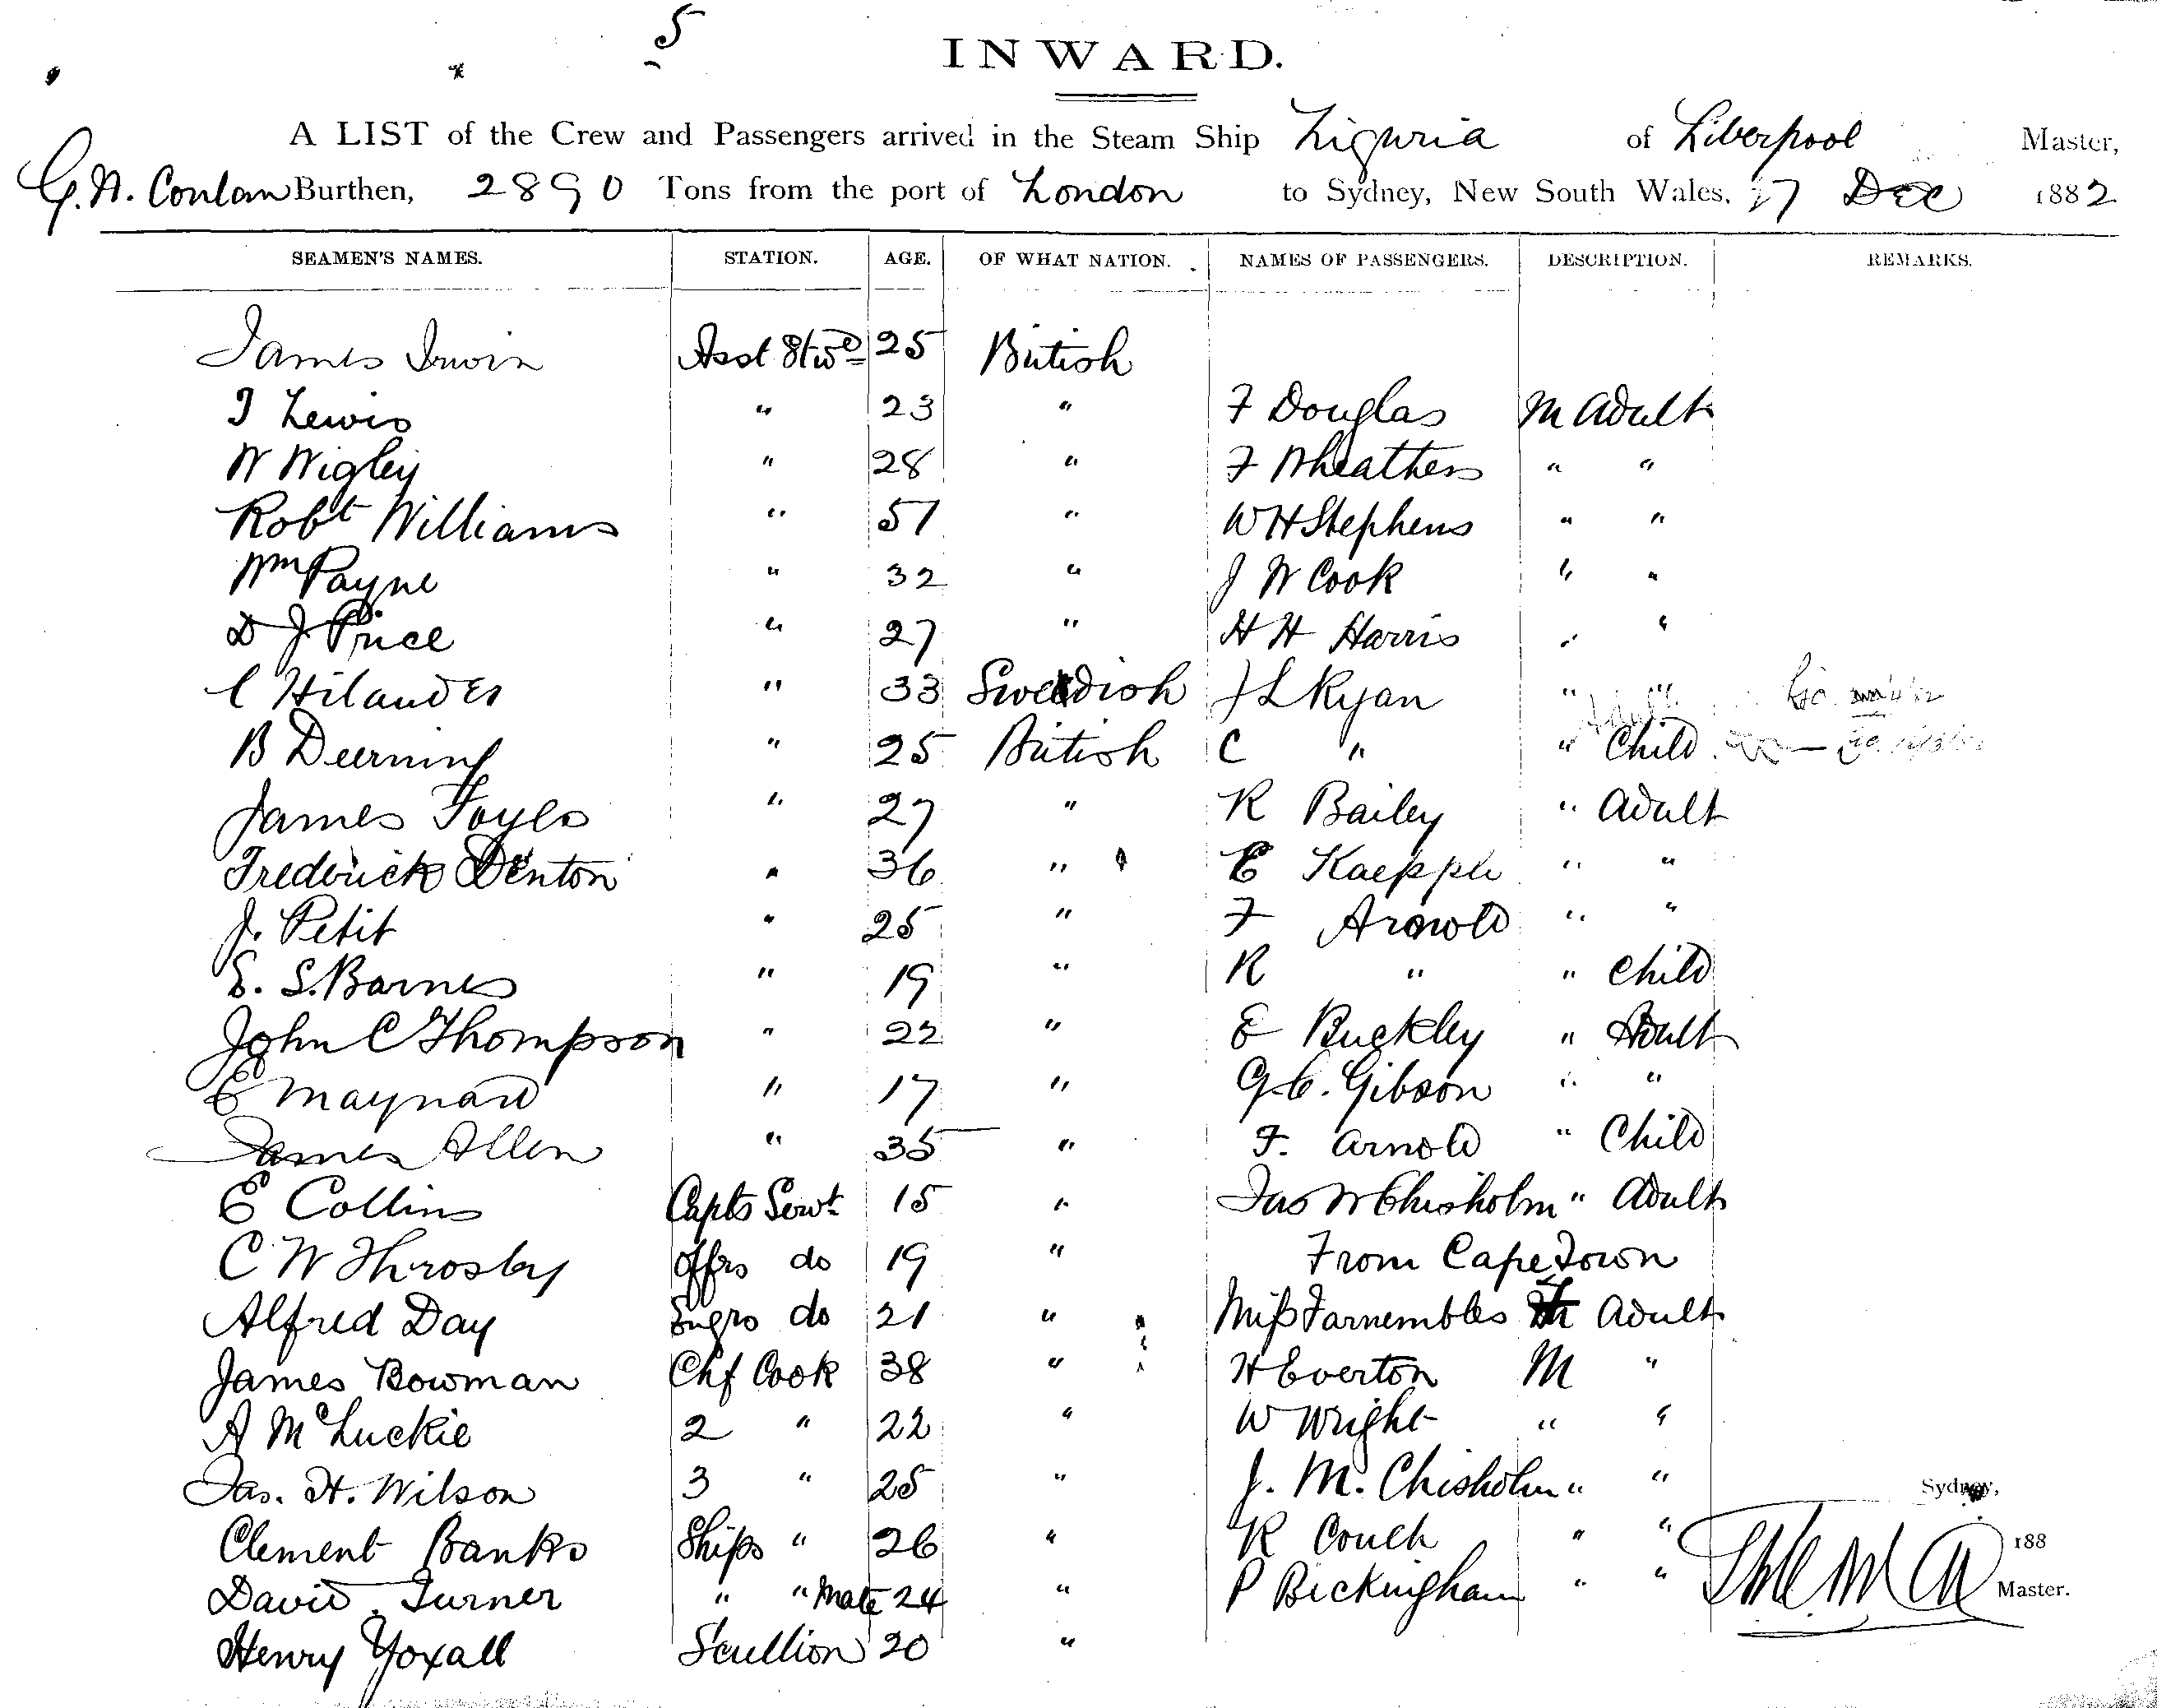 5
INWARD.
A LIST of the Crew and Passengers arrived in the Steam Ship Liguria of Liverpool Master,
G. N. Conlan Burthen, 2890 Tons from the port of London to Sydney, New South Wales, 17 Dec 1882
SEAMEN'S NAMES. STATION. AGE. OF WHAT NATION. NAMES OF PASSENGERS. DESCRIPTION. REMARKS.
James Irwin Asst Stwd 25 British
T Lewis " 23 " F Douglas M Adult
W Wigley " 28 " F Wheathers " "
Robt Williams " 51 " W H Stephens " "
Wm Payne " 32 " J W Cook " "
D J Price " 27 " H H Harris " "
C Hilander " 33 Sweedish J L Ryan " "
B Deerning " 25 British C " " Child
James Foyls " 27 " R Bailey " Adult
Frederick Denton " 36 " E Kaepple " "
J. Petit " 25 " F Arnold " "
E. S. Barnes " 19 " R " " Child
John C Thompson " 22 " E Buckley " Adult
E Maynard " 17 " G. C. Gibson " "
James Allen " 35 " F. Arnold " Child
E Collins Capts Servt 15 " Jas W Chisholm " Adult
C W Throsby Offrs do 19 " From Cape Town
Alfred Day Engrs do 21 " Miss Farnembles Adult
James Bowman Chf Cook 38 " H Everton M "
A McLuckie 2 " 22 " W Wright " "
Jas. H. Wilson 3 " 25 " J. M. Chisholm " "
Sydney,
Clement Banks Ships " 26 " R Couch " " 188
David Turner " " Mate 24 " P Bickingham " " Master.
Henry Yoxall Scullion 20 "